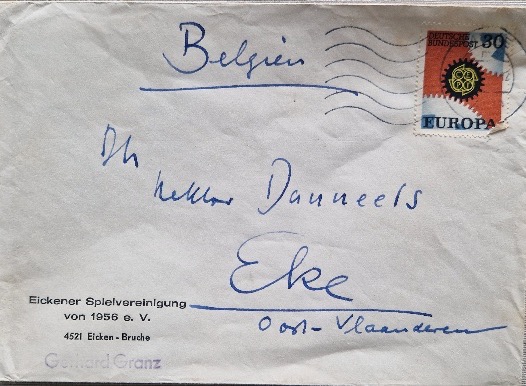 Belgien
DEUTSCHE
BUNDESPOST 30
EUROPA
Dh
Nektor Danneels
Eke
Oost-Vlaanderen
Eickener Spielvereinigung
von 1956 e. V.
4521 Eicken - Bruche
Gerhard Granz